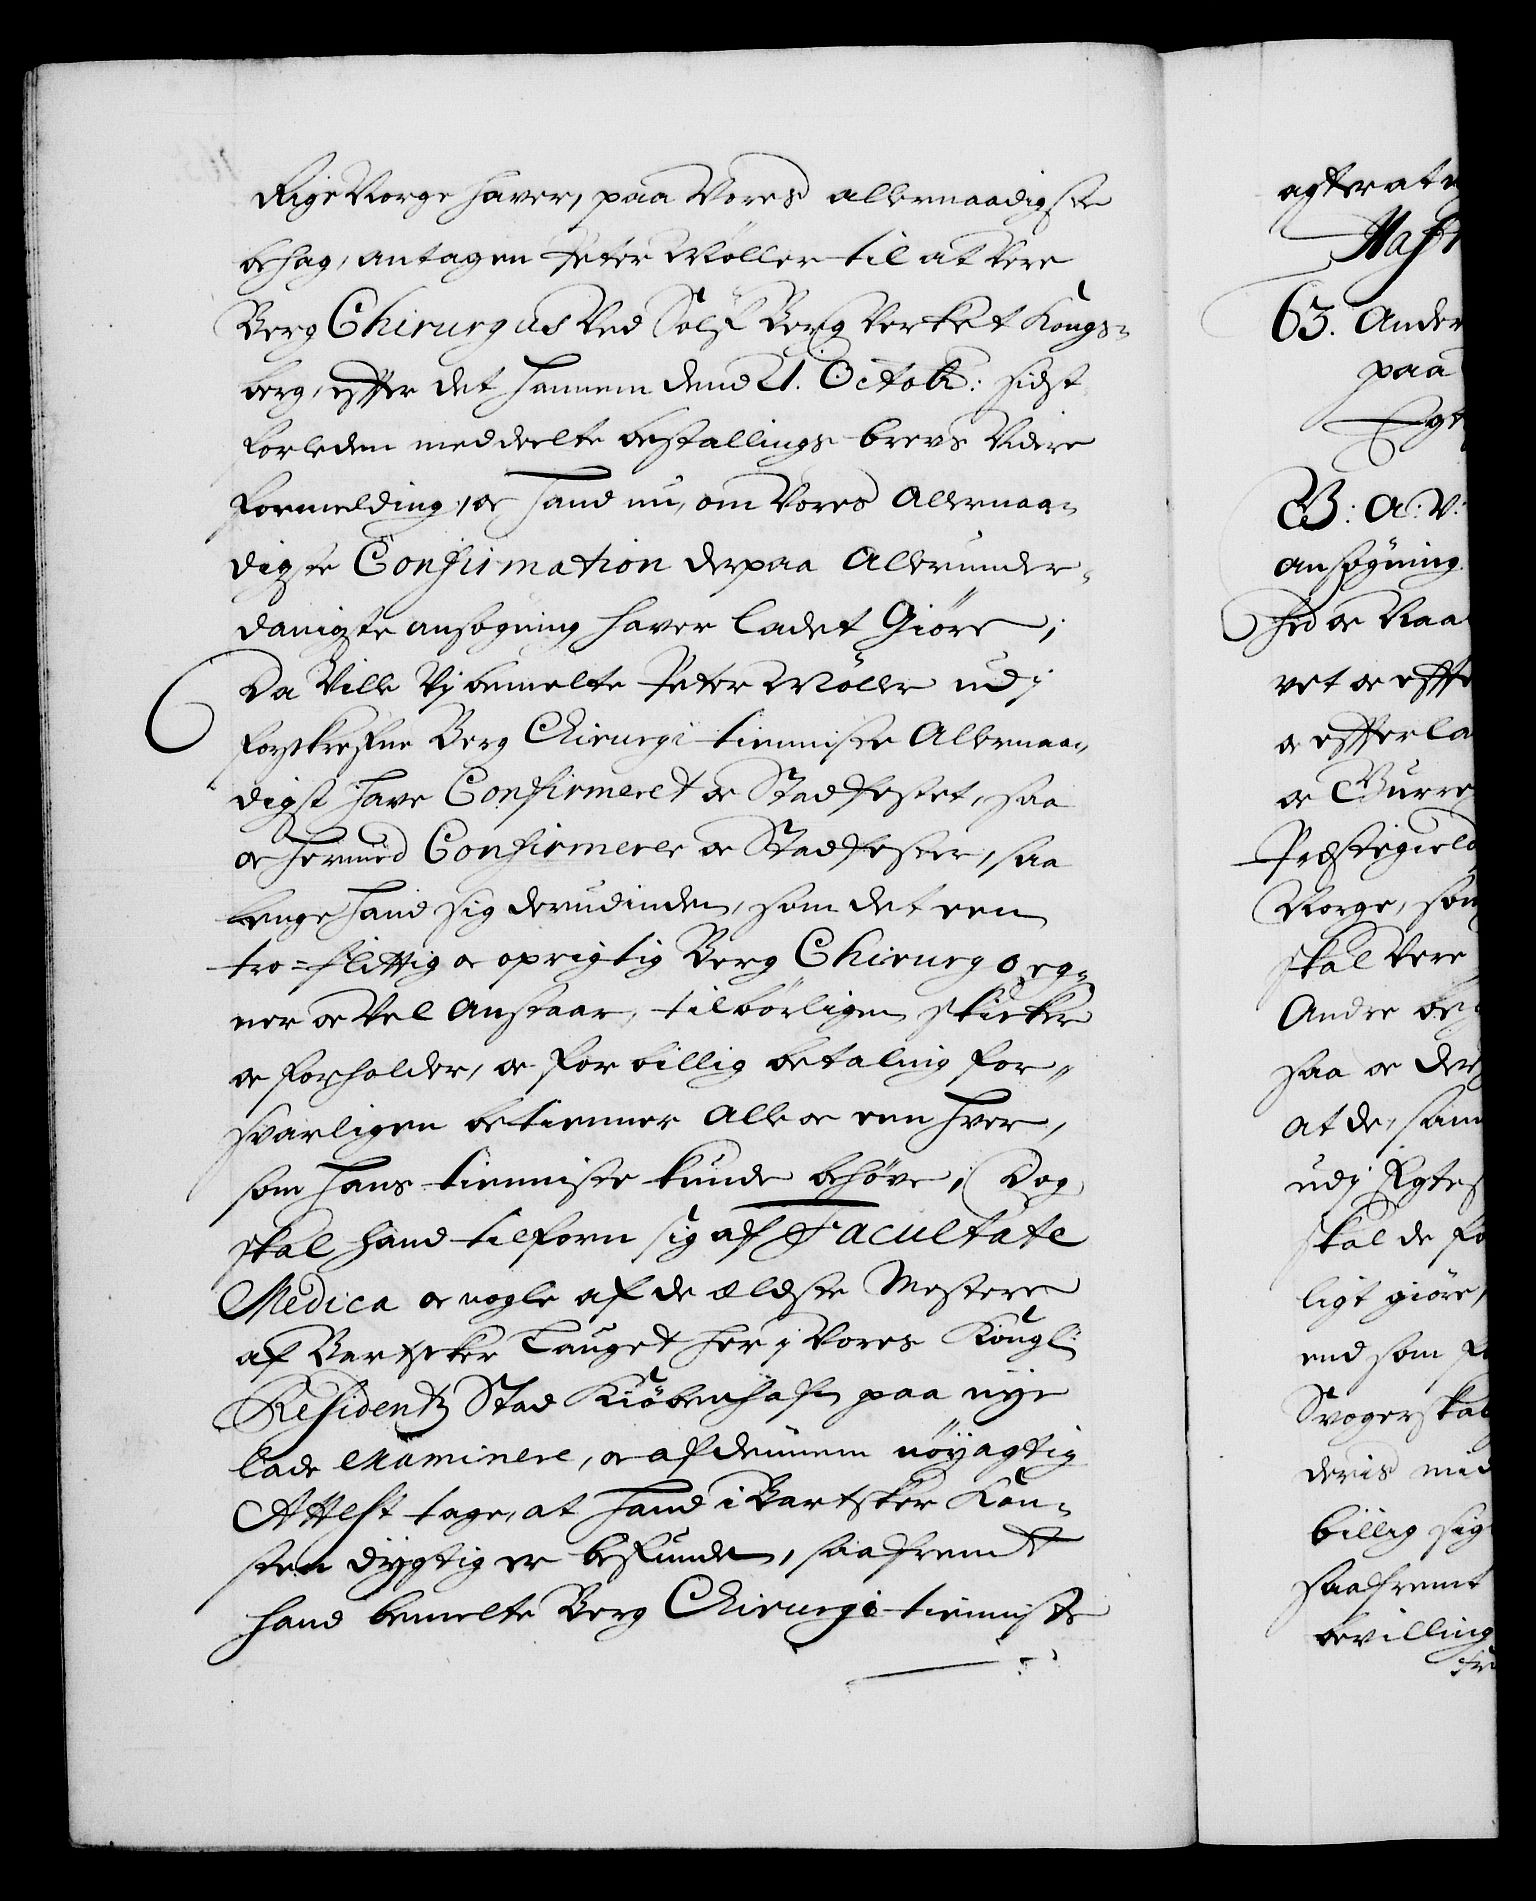 Rige Norge haver, paa Vores allernaadigste
behag, antagen Peter Møller til at Vere
Berg Chirurgus Ved Sølf Berg Verket Kongs-
berg, effter det hannem dend 21. Octobr: sidst
forleden meddeelte bestallings brevs Videre
formelding, oc hand nu, om Vores Allernaa-
digste Confirmation derpaa Allerunder-
danigste ansøgning haver ladet Giöre;
Da Ville Vj bemelte Peter Møller udj
forskrefne Berg Chirurgi tienniste Allernaa-
digst have Confirmeret oc Stadfestet, saa
oc hermed Confirmerer oc Stadfester, saa
lenge hand sig derudinden, som det een
tro- flittig oc oprigtig Berg Chirurgo eg-
ner oc Vel Anstaar, tilbörligen skicker
oc forholder, oc for billig betaling for-
svarligen betienner Alle oc een hver,
som hans tienniste kunde behöve, Dog
skal hand tilforn sig af Facultate
Medica oc nogle af de ældste Mestere
af Bartsker Lauget her j Vores Kongl:
Residentz Stad Kiöbenhafn paa nye
lade examinere, oc af dennem nöyagtig
Attest tage, at hand i Bartsker Kon-
sten dygtig er befunden, saafremt
hand bemelte Berg Chirurgi tienniste
agter at
Maj
63. Ander
paa
Egt
B: A: V:
ansøgning
hed oc Naa
vet oc effte
oc effterla
oc Burre
Præstegield
Norge, som
skal Vere
Andre be
saa oc der
at de, sam
udj Egtes
skal de fo
ligt giöre,
end som fo
Svogerskab
deris mid
billig sig
saafremt
bevilling